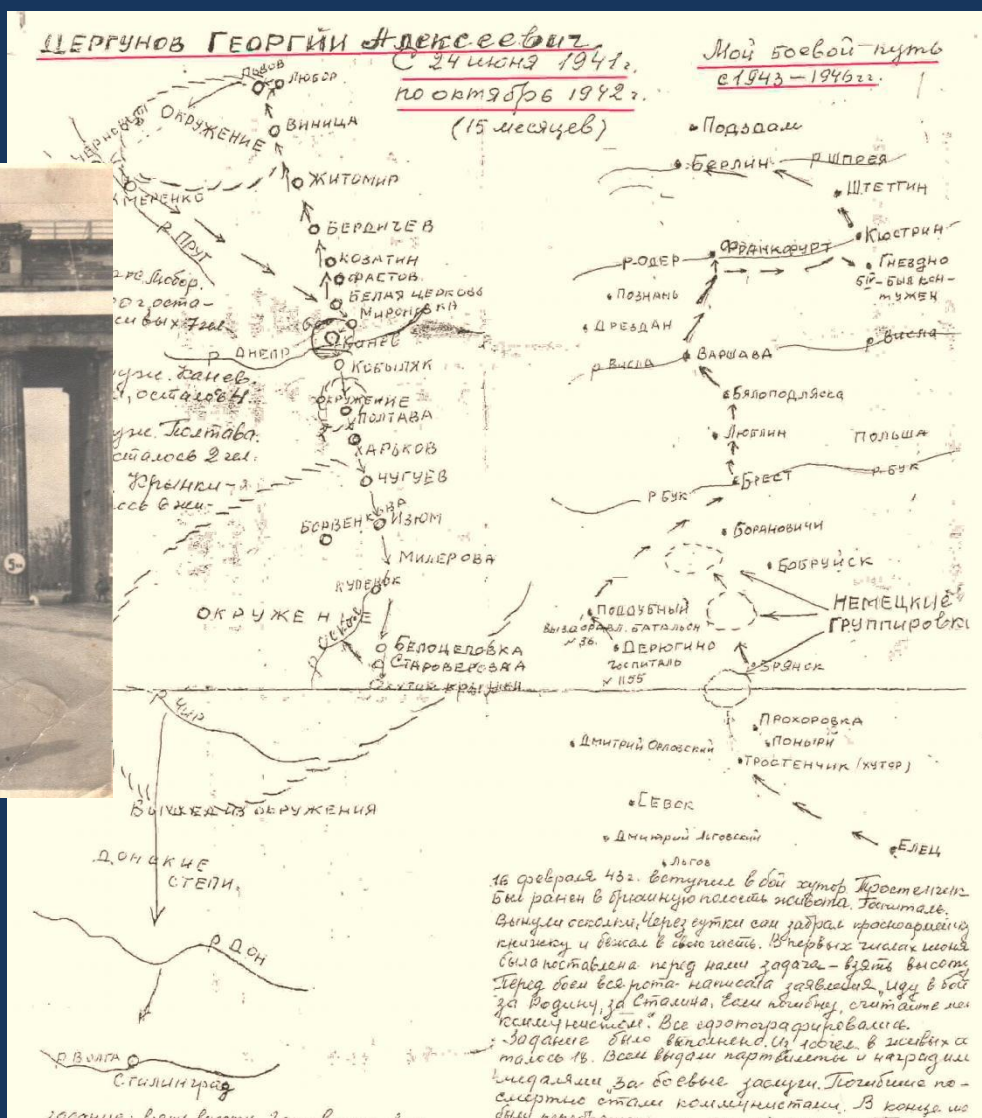 ЦЕРГУНОВ ГЕОРГИЙ Алексеевич
С 24 июня 1941г.
по октябрь 1942г.
(15 месяцев)
Мой боевой путь
с 1943–1946гг.
ЛЬВОВ
ЛЮБОР
ОКРУЖЕНИЕ
ВИНИЦА
ЖИТОМИР
МЕРЕНКО
р. ПРУТ
БЕРДИЧЕВ
КОЗАТИН
ФАСТОВ
БЕЛАЯ ЦЕРКОВЬ
МИРОНОВКА
КАНЕВ
р. ДНЕПР
КОБЫЛЯК
ОКРУЖЕНИЕ
ПОЛТАВА
ХАРЬКОВ
ЧУГУЕВ
БОРВЕНКОВА
ИЗЮМ
МИЛЕРОВА
КУПЕНСК
ОКРУЖЕНИЕ
р. Оскол
БЕЛОЦЕПОВКА
СТАРОВЕРОВКА
ХУТОР КРЫНКИ
ре Любор.
оста-
ивых 7 чел.
Канев.
осталось 4.
Полтава.
сталось 2 чел.
Крынки-
5
р. ЧИР
ВЫШЕЛ ИЗ ОКРУЖЕНИЯ
ДОНСКИЕ
СТЕПИ
р. ДОН
р. ВОЛГА
Сталинград
Подздам
БЕРЛИН
р. ШПРЕЯ
ШТЕТТИН
КЮСТРИН
ФРАНКФУРТ
р. ОДЕР
ГНЕЗДНО
был кон-
тужен
ПОЗНАНЬ
ДРЕЗДАН
р. ВИСЛА
ВАРШАВА
р. ВИСЛА
БЯЛОПОДЛЯССА
ЛЮБЛИН
ПОЛЬША
р. БУК
БРЕСТ
р. БУК
БОРАНОВИЧИ
БОБРУЙСК
НЕМЕЦКИЕ
ГРУППИРОВКИ
ПОДДУБНЫЙ
ВЫЗДОРАВЛ. БАТАЛЬОН
№ 36.
ДЕРЮГИНО
ГОСПИТАЛЬ
№ 1155
БРЯНСК
ПРОХОРОВКА
ПОНЫРИ
ДМИТРИЙ ОРЛОВСКИЙ
ТРОСТЕНЧИК (ХУТОР)
СЕВСК
ДМИТРИЙ ЛЬГОВСКИЙ
ЛЬГОВ
ЕЛЕЦ
16 февраля 43г. вступил в бой хутор Тростенчик
Был ранен в брюшную полость живота. Госпиталь.
Вынули осколки. Через сутки сам забрал красноармейскую
книжку и бежал в свою часть. В первых числах июня
была поставлена перед нами задача – взять высоту
Перед боем вся рота написала заявления „иду в бой
за Родину, за Сталина, Если погибну, считайте ме
коммунистом". Все сфотографировались.
Задание было выполнено. Из чел. в живых ос
талось 18. Всем выдали партбилеты и наградили
медалями „За боевые заслуги. Погибшие по-
смертно стали коммунистами. В конце